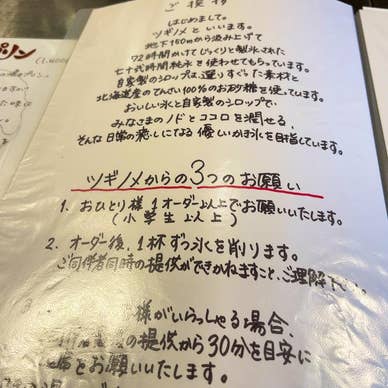 ご挨拶
はじめまして。
ツギノメといいます。
地下150mから汲み上げて
72時間かけてじっくりと製氷された
七十弐時間純氷を使わせてもらっています。
自家製のシロップは、選りすぐった素材と
北海道産のてんさい100%のお砂糖を使っています。
おいしい氷と自家製のシロップで、
みなさまのノドとココロを潤せる、
そんな日常の癒しになる優しいかき氷を目指しています。
ツギノメからの3つのお願い
1. おひとり様1オーダー以上でお願いいたします。
(小学生以上)
2. オーダー後、1杯ずつ氷を削ります。
ご同伴者同時の提供ができかねますこと、ご理解下さい
様がいらっしゃる場合、
の提供から30分を目安に
をお願いいたします。
プリン